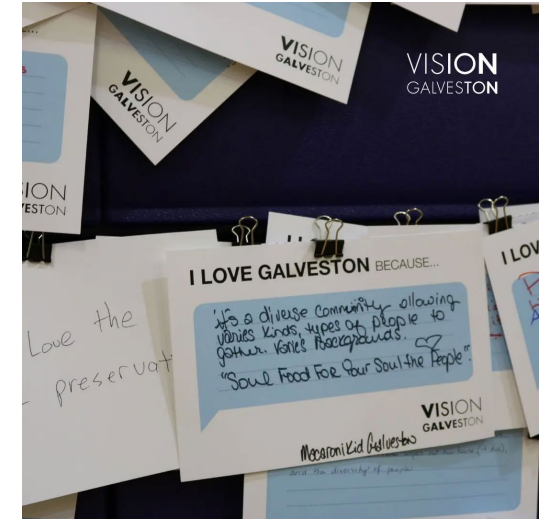 VISION
GALVESTON
VISION
GALVESTON
VISION
GALVESTON
VISION
GALVESTON
I LOVE GALVESTON BECAUSE...
it's a diverse community allowing
varies kinds, types of people to
gather. varies Backgrounds.
"Soul Food For Your Soul the People".
VISION
GALVESTON
Macaroni Kid Galveston
Love the
preservat
I LOV
and the diversity of people